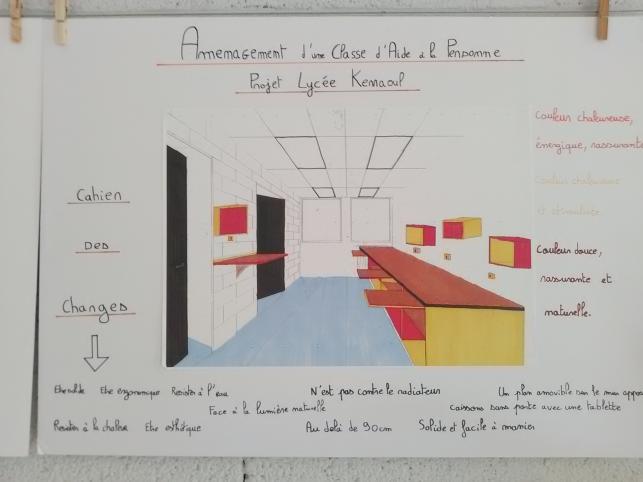 Amenagement d'une Classe d'Aide a la Personne
Projet Lycée Kernaoul
Cahier
Des
Charges
Couleur chaleureuse,
énergique, rassurante
Couleur chaleureuse
et stimulante
Couleur douce,
rassurante et
naturelle.
Etre solide Etre ergonomique Resister à l'eau
Face à la lumière naturelle
Resister à la chaleur Etre esthétique
N'est pas contre le radiateur
Au delà de 90cm
Un plan amovible sur le mur
caissons sans porte avec une tablette
Solide et facile à manier